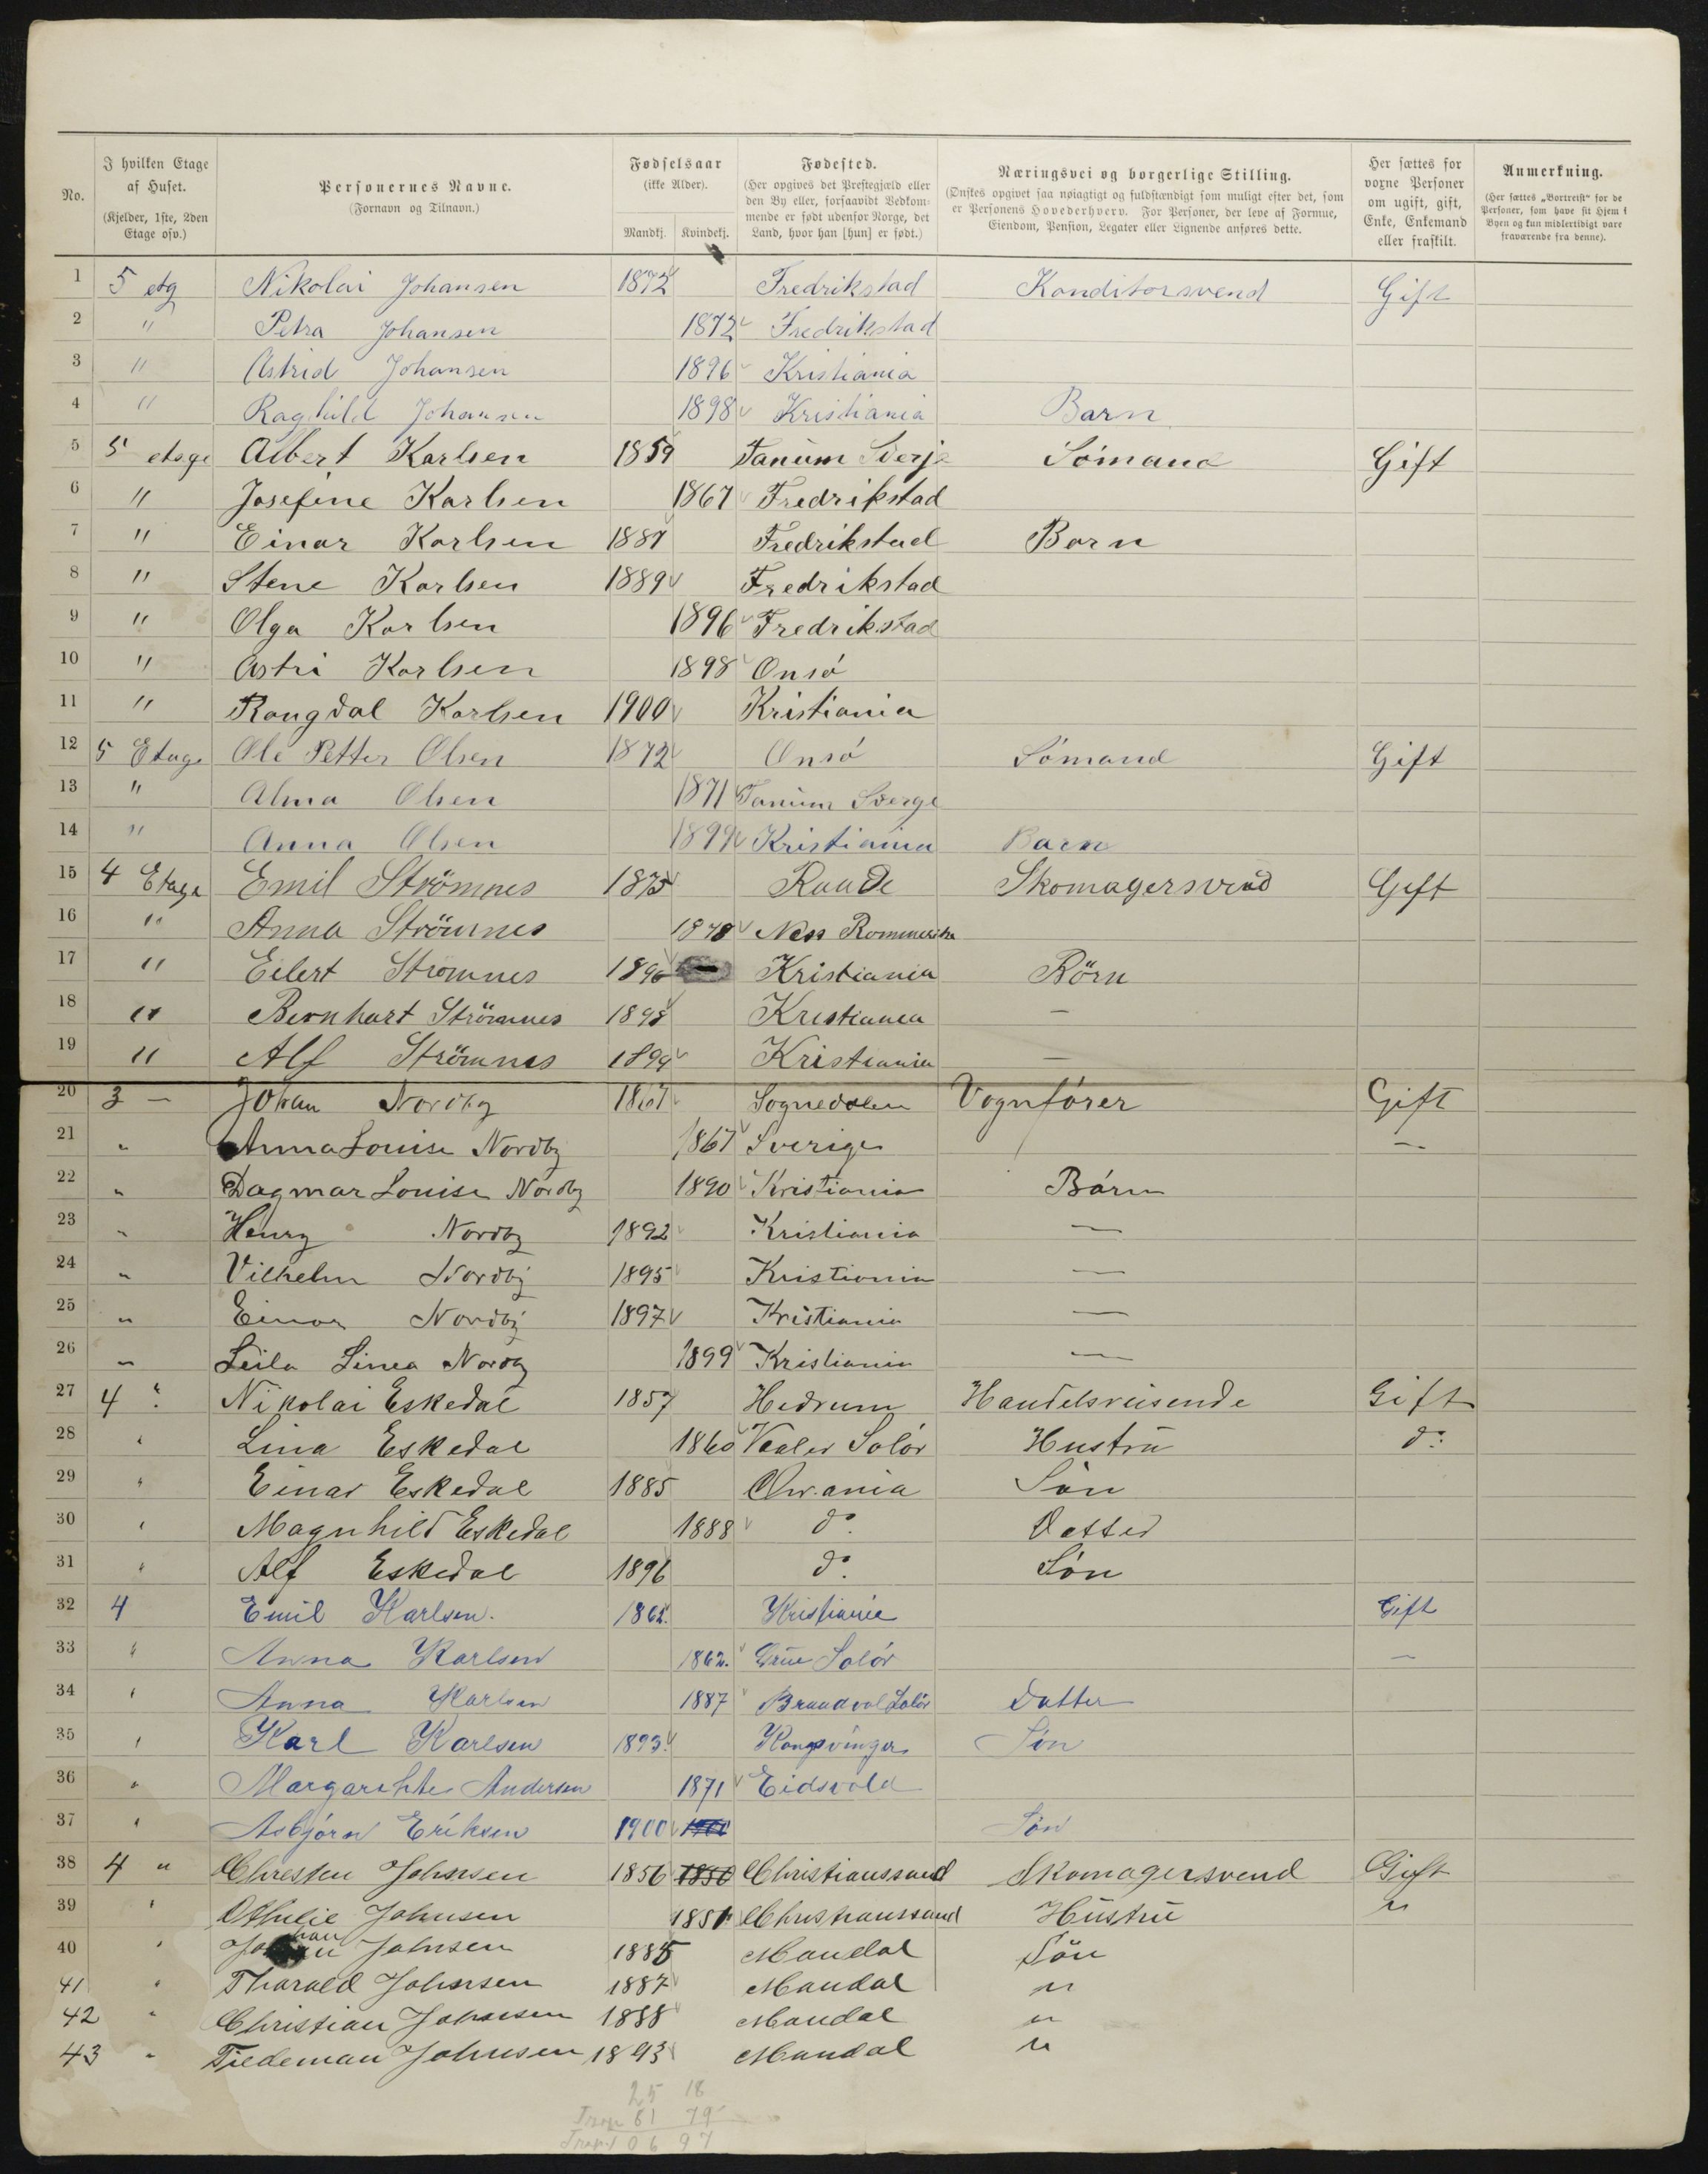 No.
I hvilken Etage af Huset.
(Kjelder, 1ste, 2den Etage osv.)
Personernes Navne.
(Fornavn og Tilnavn.)
Fødselsaar
(ikke Alder).
Mandkj. Kvindekj.
Fødested.
(Her opgives det Prestegjæld eller den By eller, forsaavidt Vedkommende er født udenfor Norge, det Land, hvor han [hun] er født.)
Næringsvei og borgerlige Stilling.
(Ønskes opgivet saa nøiagtigt og fuldstændigt som muligt efter det, som er Personens Hovederhverv. For Personer, der leve af Formue, Eiendom, Pension, Legater eller Lignende anføres dette.
Her sættes for voxne Personer om ugift, gift, Enke, Enkemand eller fraskilt.
Anmerkning.
(Her sættes „Bortreist" for de Personer, som have sit Hjem i Byen og kun midlertidigt vare fraværende fra denne).
1 5 etg Nikolai Johansen 1872 Fredrikstad Konditorsvend Gift
2 " Petra Johansen 1872 Fredrikstad
3 " Astrid Johansen 1896 Kristiania
4 " Raghild Johansen 1898 Kristiania Barn
5 5 etage Albert Karlsen 1859 Tanum Sverje Sömand Gift
6 " Josefine Karlsen 1867 Fredrikstad
7 " Einar Karlsen 1887 Fredrikstad Barn
8 " Stene Karlsen 1889 Fredrikstad
9 " Olga Karlsen 1896 Fredrikstad
10 " Astri Karlsen 1898 Onsó
11 " Rangdal Karlsen 1900 Kristiania
12 5 Etage Ole Petter Olsen 1872 Onsó Sómand Gift
13 " Alma Olsen 1871 Tanum Sverge
14 " Anna Olsen 1899 Kristiania Barn
15 4 Etage Emil Strömnes 1875 Raade Skomagersvend Gift
16 " Anna Strömnes 1878 Ness Rommerike
17 " Eilert Strömnes 1896 Kristiania Börn
18 " Bernhart Strömnes 1898 Kristiania —
19 " Alf Strömnes 1899 Kristiania —
20 3 — Johan Nordby 1867 Sognedalen Vognfører Gift
21 " Anna Louise Nordby 1867 Sverige —
22 " Dagmar Louise Nordby 1890 Kristiania Børn
23 " Henry Nordby 1892 Kristiania —
24 " Vilhelm Nordby 1895 Kristiania —
25 " Einar Nordby 1897 Kristiania —
26 " Leila Linea Nordby 1899 Kristiania —
27 4 " Nikolai Eskedal 1857 Hedrum Handelsreisende Gift
28 " Lina Eskedal 1860 Vaaler Solør Hustru do
29 " Einar Eskedal 1885 Chr.ania Søn
30 " Magnhild Eskedal 1888 do. Datter
31 " Alf Eskedal 1896 do. Søn
32 4 Emil Karlsen. 1862. Kristiania Gift
33 " Anna Karlsen 1862. Grue Solør —
34 " Anna Karlsen 1887 Brandval Solør Datter
35 " Karl Karlsen 1893 Kongsvinger Søn
36 " Margarehte Andersen 1871 Eidsvold
37 " Asbjørn Eriksen 1900 1900 Søn
38 4 " Christen Johnsen 1856 1850 Christianssand Skomagersvend Gift
39 " Othilie Johnsen 1851 Christianssand Hustru "
40 " Johan Johnsen 1885 Mandal Sön
41 " Tharald Johnsen 1887 Mandal "
42 " Christian Johnsen 1888 Mandal "
43 " Tiedeman Johnsen 1893 Mandal "
25 18
81 79
106 97